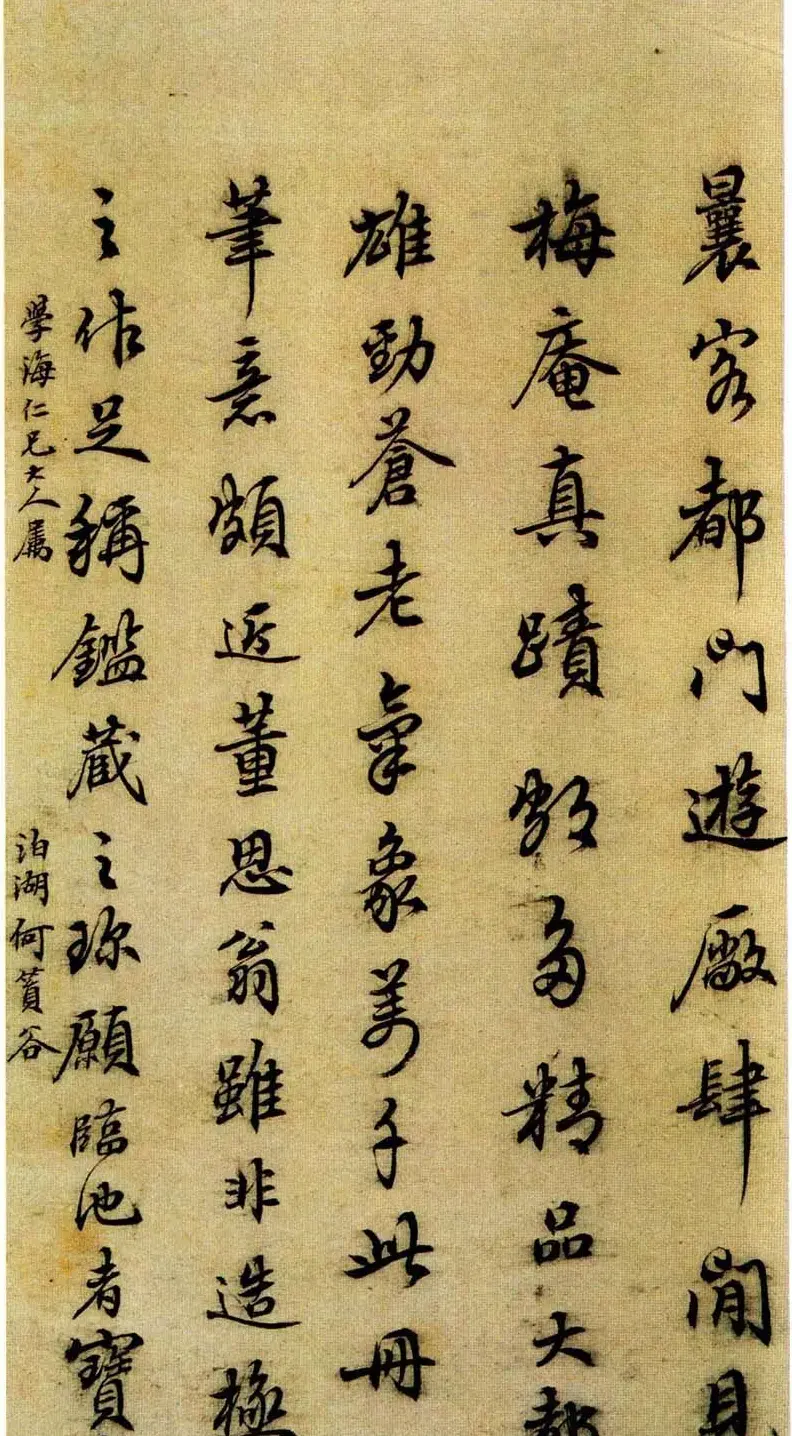 曩客都門遊廠肆閒見
梅庵真蹟頗多精品大都
雄勁蒼老氣象萬千此冊
筆意頗近董思翁雖非造極
之作足稱鑑藏之珍願臨池者寶
學海仁兄大人屬
泊湖何蕡谷